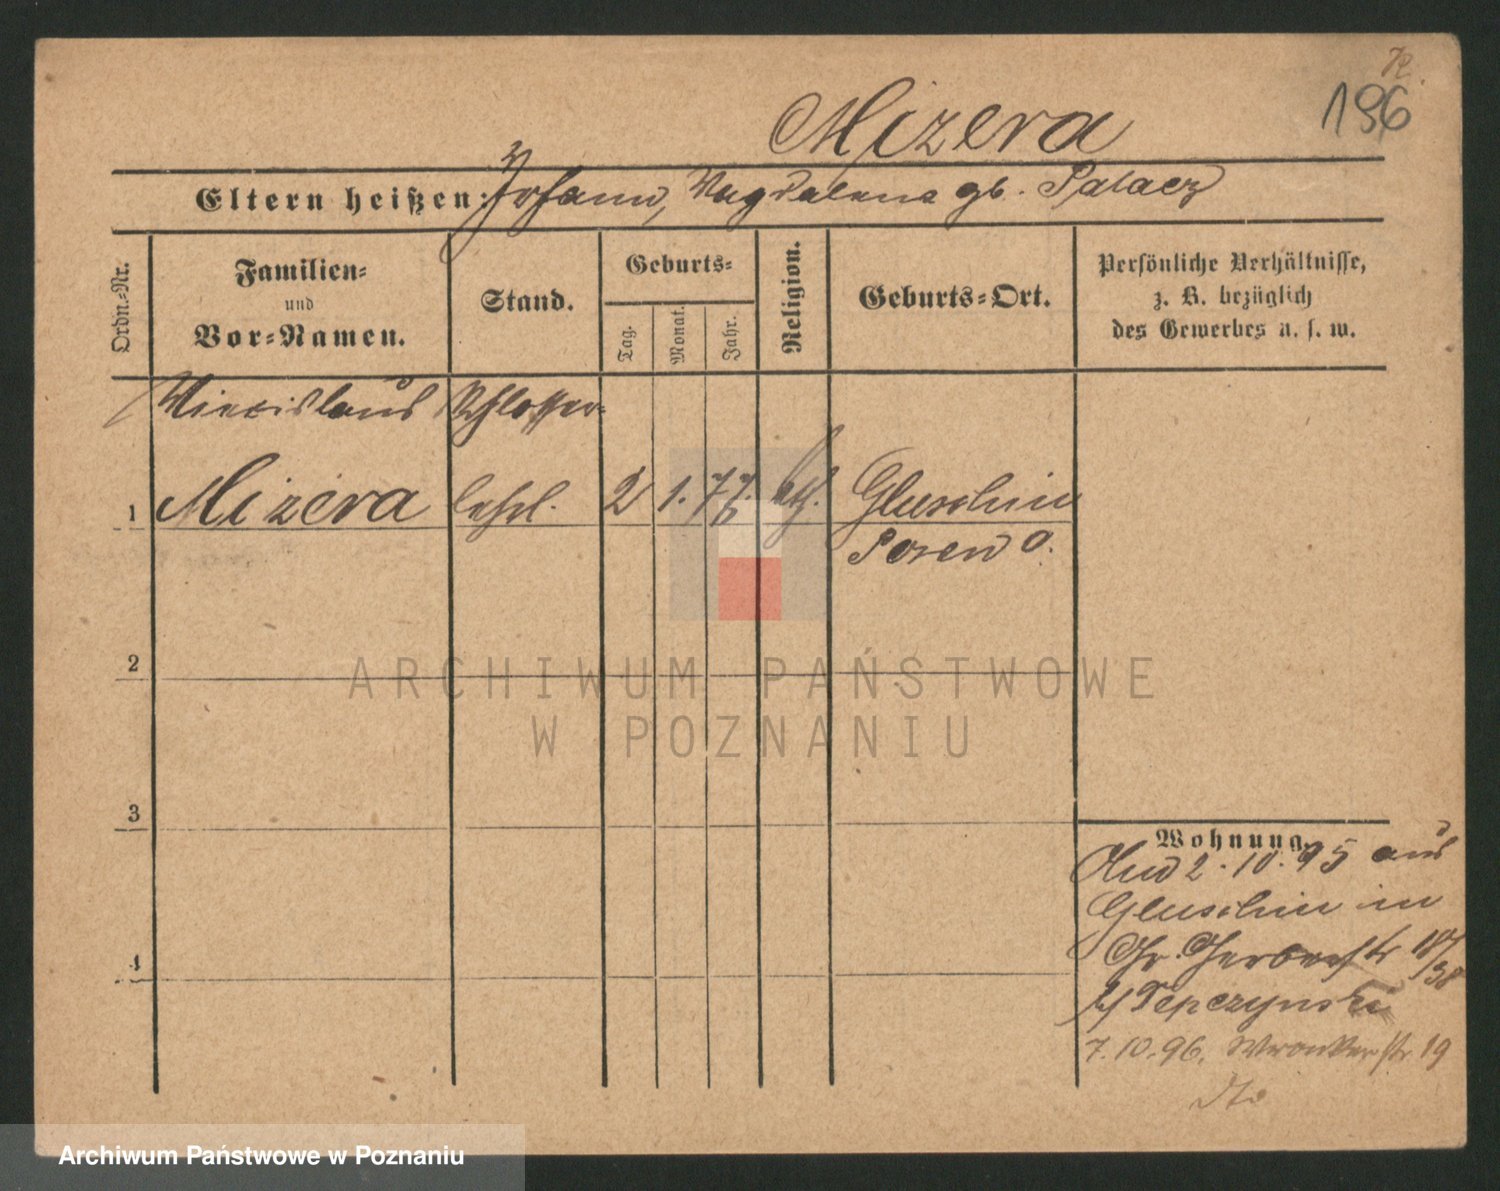 K.
196
Mizera
Eltern heißen: Johann, Magdalena gb. Palacz
Ordn.-Nr.
Familien-
und
Vor-Namen.
Stand.
Geburts-
Tag.
Monat.
Jahr.
Religion.
Geburts-Ort.
Persönliche Verhältnisse,
z. B. bezüglich
des Gewerbes u. s. w.
Miecislaus Schlosser-
1 Mizera lehrl. 2 1. 77. kth. Gluschin
Posen O.
2
3
4
Wohnung.
2.10.95 aus
Gluschin in
Gr. Gerberstr 18/
38
b/ Pepczynski
7.10.96. Wronkerstr. 19
dto
ARCHIWUM PAŃSTWOWE
W POZNANIU
Archiwum Państwowe w Poznaniu